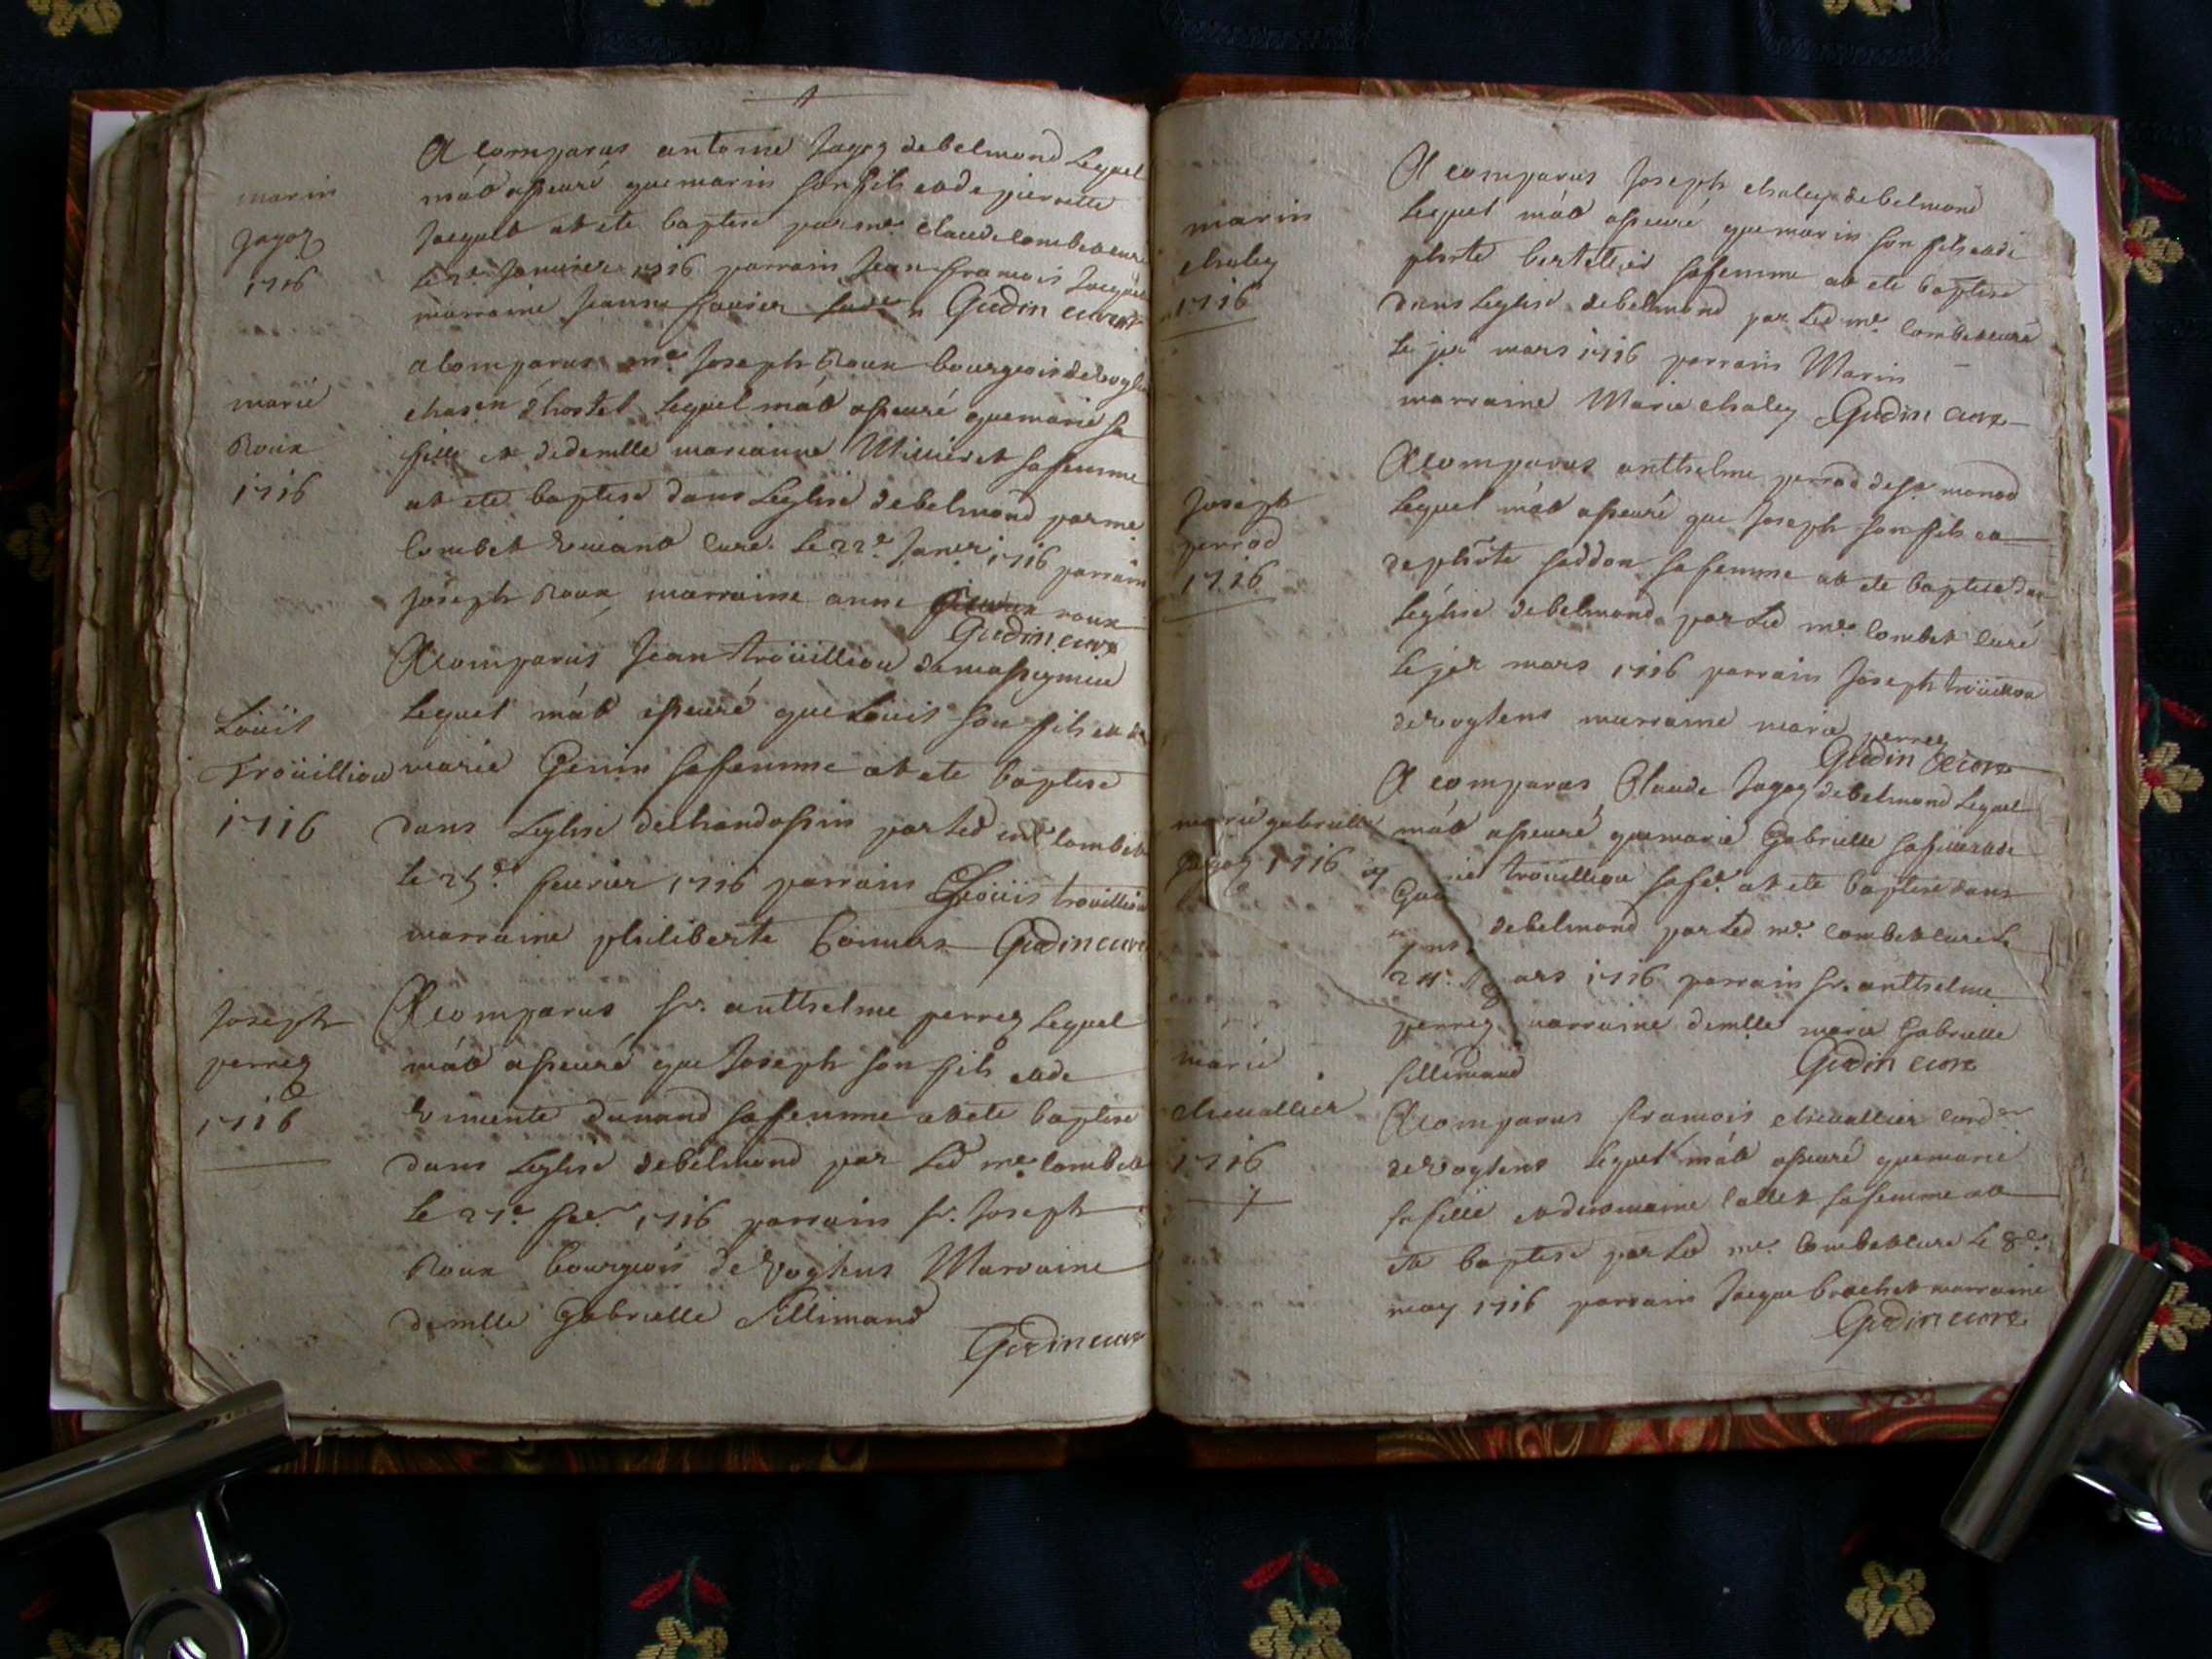 marin
Jagoz
1716
A comparus antoine Jagoz de belmond Lequel
m'at asseuré que marin son fils et de pierrette
Jacquet at ete baptise par mre. claude combet curé
Le 2e. Janvier 1716 parrain Jean francois Jacquet
marraine Jeanne favier Gudin curé
marie
Roux
1716
a comparus mre Joseph Roux bourgeois de
Lequel m'at asseuré que marie sa
fille et de demlle marianne Millieret sa femme
at ete baptise dans Leglise de belmond par mre
Combet curé Le 22e. Janer. 1716 parrain
Joseph Roux marraine anne roux
Gudin curé
Loüis
Troüilliou
1716
A comparus Jean troüilliou de massignieu
Lequel m'at asseuré que Loüis son fils et de
marie Genin sa femme at ete baptise
dans Leglise de chandossin par Led mre combet
Le 25e. feuvrier 1716 parrain Loüis troüilliou
marraine philiberte Gudin curé
Joseph
perreg
1716
A comparus sr. anthelme perreg Lequel
m'at asseuré que Joseph son fils et de
dunand sa femme at ete baptise
dans Leglise de belmond par Led mre combet
Le 27e. fev. 1716 parrain sr. Joseph
Roux bourgeois de Voghens Marraine
demlle Gabrielle Sillimand
Gudin curé
marin
chaley
1716
A comparus Joseph chaley de belmond
Lequel m'at asseuré que marin son fils et de
phrte bertellier sa femme at ete baptise
dans Leglise de belmond par Led mre combet curé
Le jer mars 1716 parrain Marin
marraine Marie chaley Gudin curé
Joseph
perrod
1716
A comparus anthelme perrod de monod
Lequel m'at asseuré que Joseph son fils et
de phrte saddon sa femme at ete baptise dans
Leglise de belmond par Led mre combet curé
Le jer mars 1716 parrain Joseph troüilliou
de Voghens marraine marie perreg
Gudin curé
marie gabrielle
Jagoz 1716
A comparus Claude Jagoz de belmond Lequel
m'at asseuré que marie Gabrielle sa fille et de
troüilliou sa fe. at ete baptise dans
de belmond par Led mre. combet curé Le
mars 1716 parrain sr. anthelme
perreg marraine demlle marie Gabrielle
sillimand Gudin curé
marie
chevallier
1716
A comparus francois chevallier
de Voghens Lequel m'at asseuré que marie
sa fille et de romaine callet sa femme at
ete baptise par Led mre. Combet curé Le 8e.
may 1716 parrain Jacque brochet marraine
Gudin curé